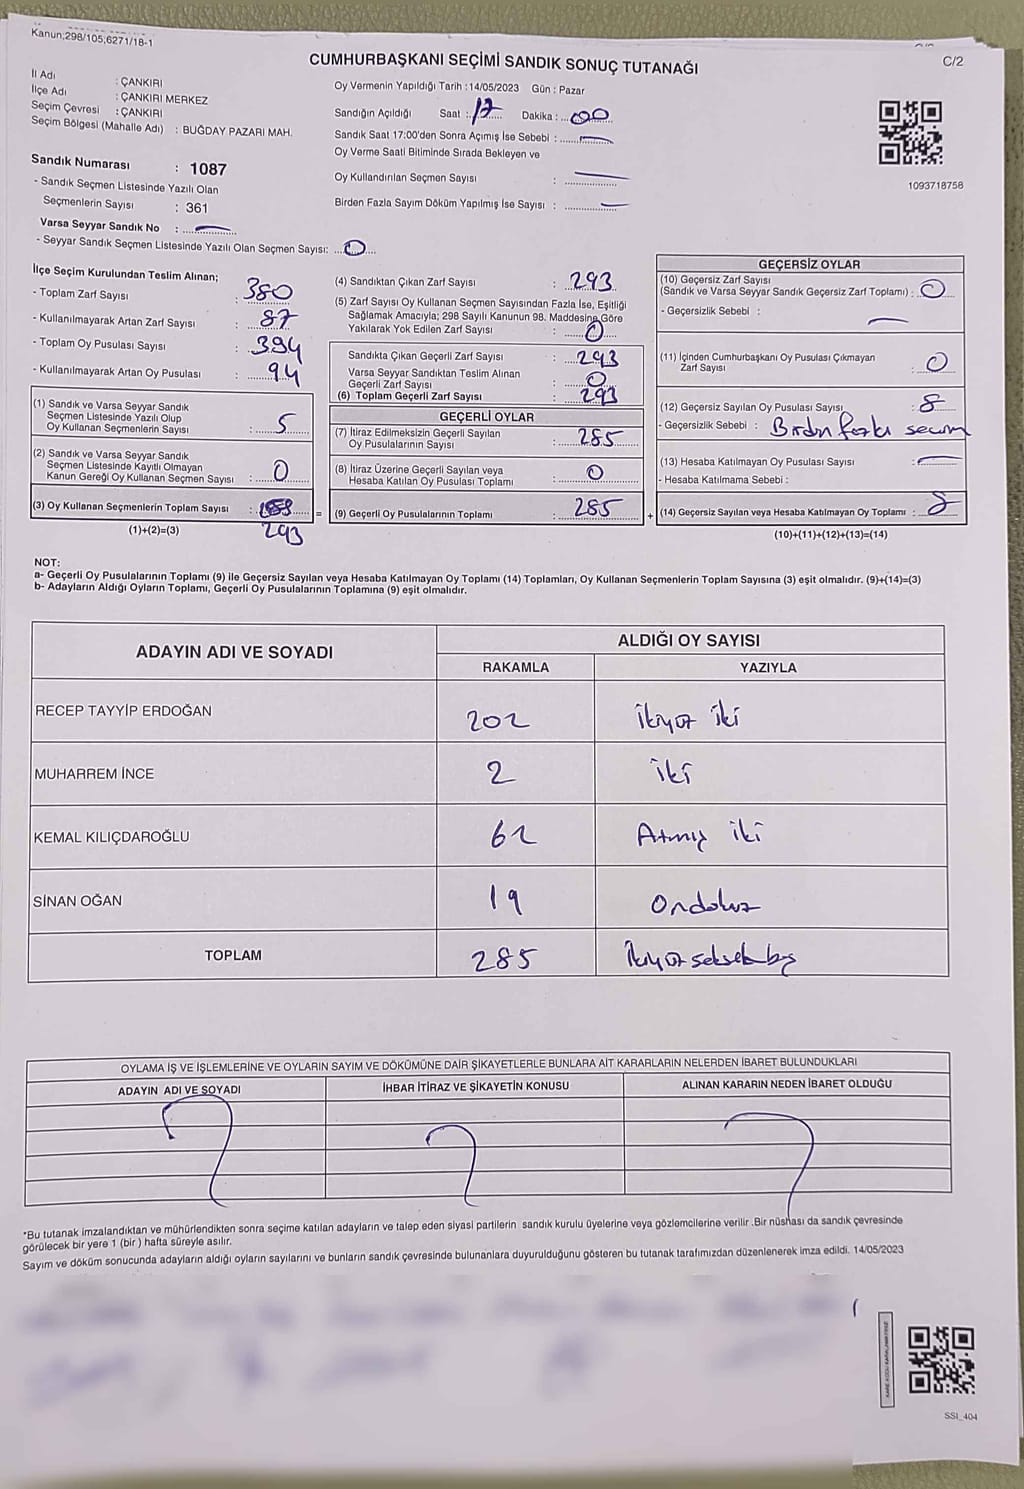 Kanun;298/105;6271/18-1
C/2
CUMHURBAŞKANI SEÇİMİ SANDIK SONUÇ TUTANAĞI
İl Adı : ÇANKIRI
İlçe Adı : ÇANKIRI MERKEZ
Seçim Çevresi : ÇANKIRI
Seçim Bölgesi (Mahalle Adı) : BUĞDAY PAZARI MAH.
Sandık Numarası : 1087
- Sandık Seçmen Listesinde Yazılı Olan
Seçmenlerin Sayısı : 361
Varsa Seyyar Sandık No :
- Seyyar Sandık Seçmen Listesinde Yazılı Olan Seçmen Sayısı: 0
Oy Vermenin Yapıldığı Tarih :14/05/2023 Gün : Pazar
Sandığın Açıldığı Saat : 17 Dakika : 00
Sandık Saat 17:00'den Sonra Açımış İse Sebebi :
Oy Verme Saati Bitiminde Sırada Bekleyen ve
Oy Kullandırılan Seçmen Sayısı :
Birden Fazla Sayım Döküm Yapılmış İse Sayısı :
1093718758
İlçe Seçim Kurulundan Teslim Alınan;
- Toplam Zarf Sayısı : 380
- Kullanılmayarak Artan Zarf Sayısı : 87
- Toplam Oy Pusulası Sayısı : 394
- Kullanılmayarak Artan Oy Pusulası : 94
(1) Sandık ve Varsa Seyyar Sandık
Seçmen Listesinde Yazılı Olup
Oy Kullanan Seçmenlerin Sayısı : 5
(2) Sandık ve Varsa Seyyar Sandık
Seçmen Listesinde Kayıtlı Olmayan
Kanun Gereği Oy Kullanan Seçmen Sayısı : 0
(3) Oy Kullanan Seçmenlerin Toplam Sayısı :
293
=
(1)+(2)=(3)
(4) Sandıktan Çıkan Zarf Sayısı : 293
(5) Zarf Sayısı Oy Kullanan Seçmen Sayısından Fazla İse, Eşitliği
Sağlamak Amacıyla; 298 Sayılı Kanunun 98. Maddesine Göre
Yakılarak Yok Edilen Zarf Sayısı : 0
Sandıkta Çıkan Geçerli Zarf Sayısı : 293
Varsa Seyyar Sandıktan Teslim Alınan
Geçerli Zarf Sayısı : 0
(6) Toplam Geçerli Zarf Sayısı : 293
GEÇERLİ OYLAR
(7) İtiraz Edilmeksizin Geçerli Sayılan
Oy Pusulalarının Sayısı : 285
(8) İtiraz Üzerine Geçerli Sayılan veya
Hesaba Katılan Oy Pusulası Toplamı : 0
(9) Geçerli Oy Pusulalarının Toplamı : 285
+
GEÇERSİZ OYLAR
(10) Geçersiz Zarf Sayısı
(Sandık ve Varsa Seyyar Sandık Geçersiz Zarf Toplamı) : 0
- Geçersizlik Sebebi :
(11) İçinden Cumhurbaşkanı Oy Pusulası Çıkmayan
Zarf Sayısı : 0
(12) Geçersiz Sayılan Oy Pusulası Sayısı : 8
- Geçersizlik Sebebi : Birden fazla secim
(13) Hesaba Katılmayan Oy Pusulası Sayısı :
- Hesaba Katılmama Sebebi :
(14) Geçersiz Sayılan veya Hesaba Katılmayan Oy Toplamı : 8
(10)+(11)+(12)+(13)=(14)
NOT:
a- Geçerli Oy Pusulalarının Toplamı (9) ile Geçersiz Sayılan veya Hesaba Katılmayan Oy Toplamı (14) Toplamları, Oy Kullanan Seçmenlerin Toplam Sayısına (3) eşit olmalıdır. (9)+(14)=(3)
b- Adayların Aldığı Oyların Toplamı, Geçerli Oy Pusulalarının Toplamına (9) eşit olmalıdır.
ADAYIN ADI VE SOYADI
ALDIĞI OY SAYISI
RAKAMLA YAZIYLA
RECEP TAYYİP ERDOĞAN 202 ikiyüz iki
MUHARREM İNCE 2 iki
KEMAL KILIÇDAROĞLU 62 Atmış iki
SİNAN OĞAN 19 Ondokuz
TOPLAM 285 ikiyüzseksenbeş
OYLAMA İŞ VE İŞLEMLERİNE VE OYLARIN SAYIM VE DÖKÜMÜNE DAİR ŞİKAYETLERLE BUNLARA AİT KARARLARIN NELERDEN İBARET BULUNDUKLARI
ADAYIN ADI VE SOYADI İHBAR İTİRAZ VE ŞİKAYETİN KONUSU ALINAN KARARIN NEDEN İBARET OLDUĞU
*Bu tutanak imzalandıktan ve mühürlendikten sonra seçime katılan adayların ve talep eden siyasi partilerin sandık kurulu üyelerine veya gözlemcilerine verilir .Bir nüshası da sandık çevresinde
görülecek bir yere 1 (bir ) hafta süreyle asılır.
Sayım ve döküm sonucunda adayların aldığı oyların sayılarını ve bunların sandık çevresinde bulunanlara duyurulduğunu gösteren bu tutanak tarafımızdan düzenlenerek imza edildi. 14/05/2023
SSI_404